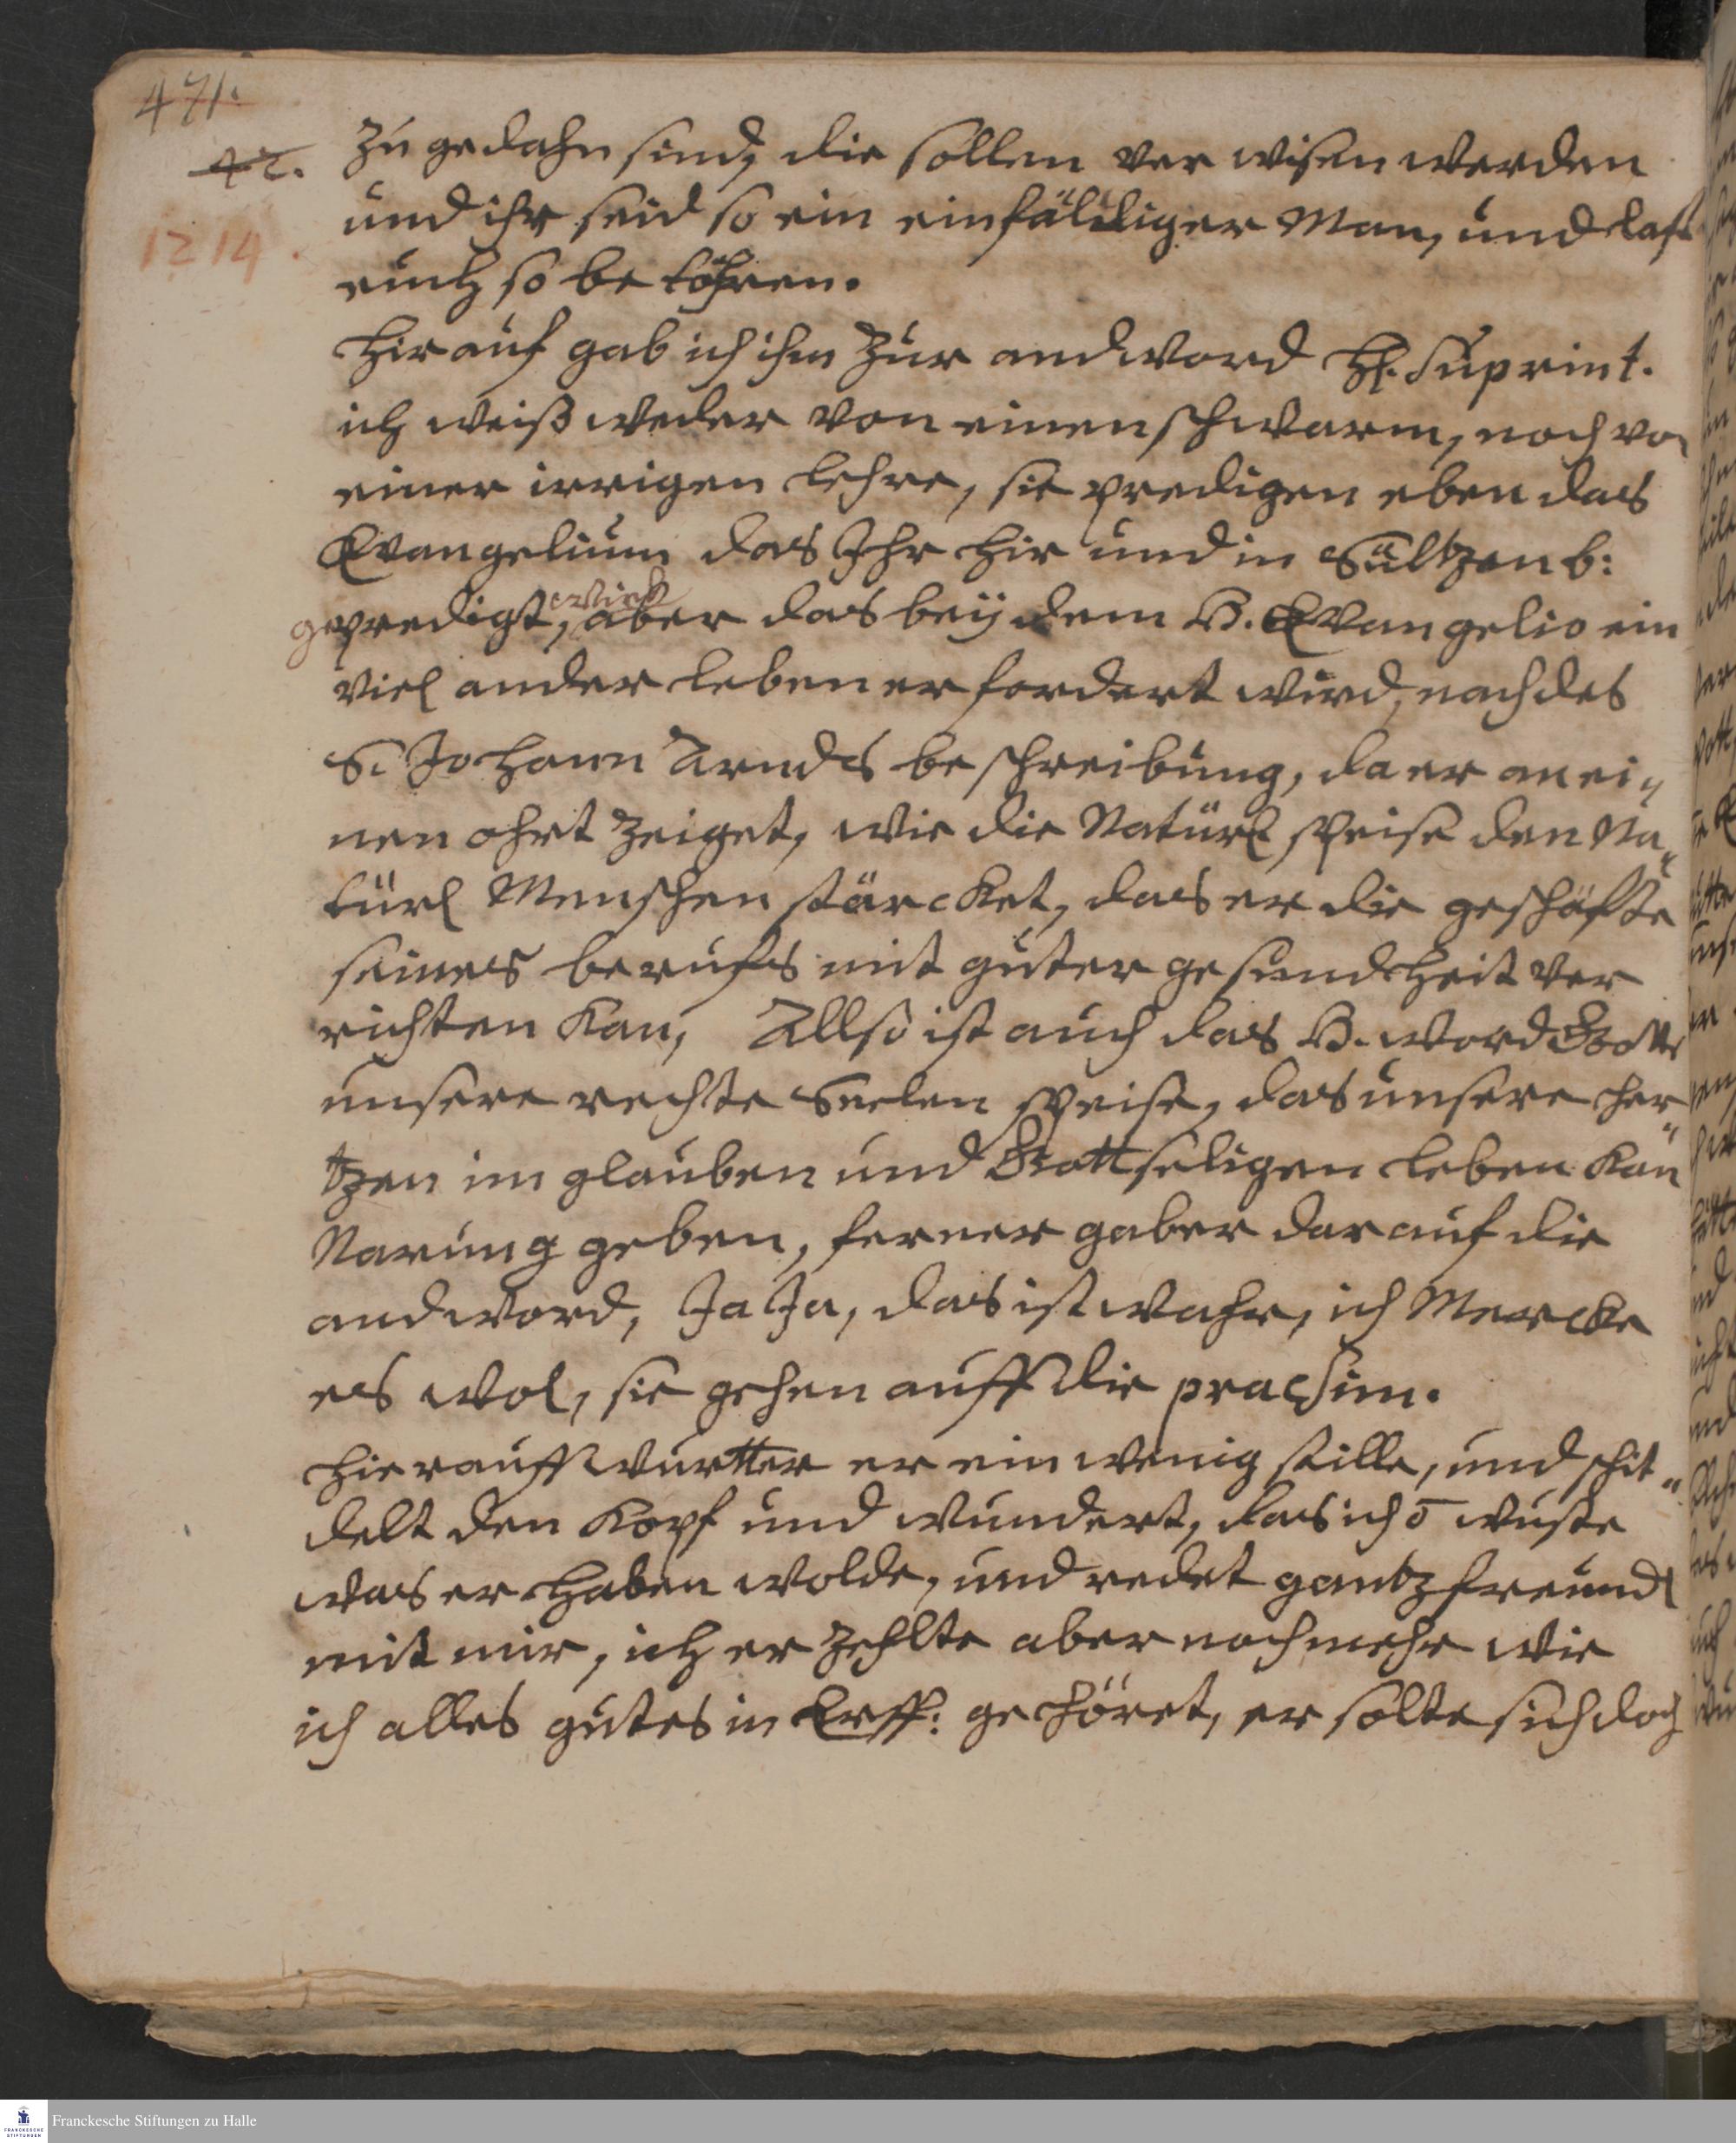 471.
42.
1214.
zu gedahn sind, die sollen ver wisen werden
und ihr seid so ein einfäldiger Man, und last
euch so be töhren.
Hirauf gab ich ihm zur andword H. Suprint.
ich weiß weder von einen schwarm, noch von
einer irrigen lehre, sie predigen eben das
Evangelium das Ihr hir und in Sültzenb:
gepredigt, aber das beÿ dem H. Evangelio ein
viel ander leben erfordert wird, nach des
S. Johann Arnds beschreibung, da er an ei„
nen ohrt zeiget, wie die Natürl speise den Na„
türl Menschen stärcket, das er die geschäffte
seines berufs mit guter gesundheit ver
richten kan, Allso ist auch das H. word Gottes
unsere rechte Seelen speise, das unsere her„
tzen im glauben und Gottseligen leben kan
Narung geben, ferner gaber darauf die
andword, Ja Ja, das ist wahr, ich Mercke
es wol, sie gehen auff die pracsim.
hierauff wurtter er ein wenig stille, und schit„
delt den Kopf und wundert, das ich ō wuste
was er haben wolde, und redet gantz freundl
mit mir, ich er zehlte aber noch mehr wie
ich alles gutes in Erff: gehöret, er solte sich doch
Franckesche Stiftungen zu Halle